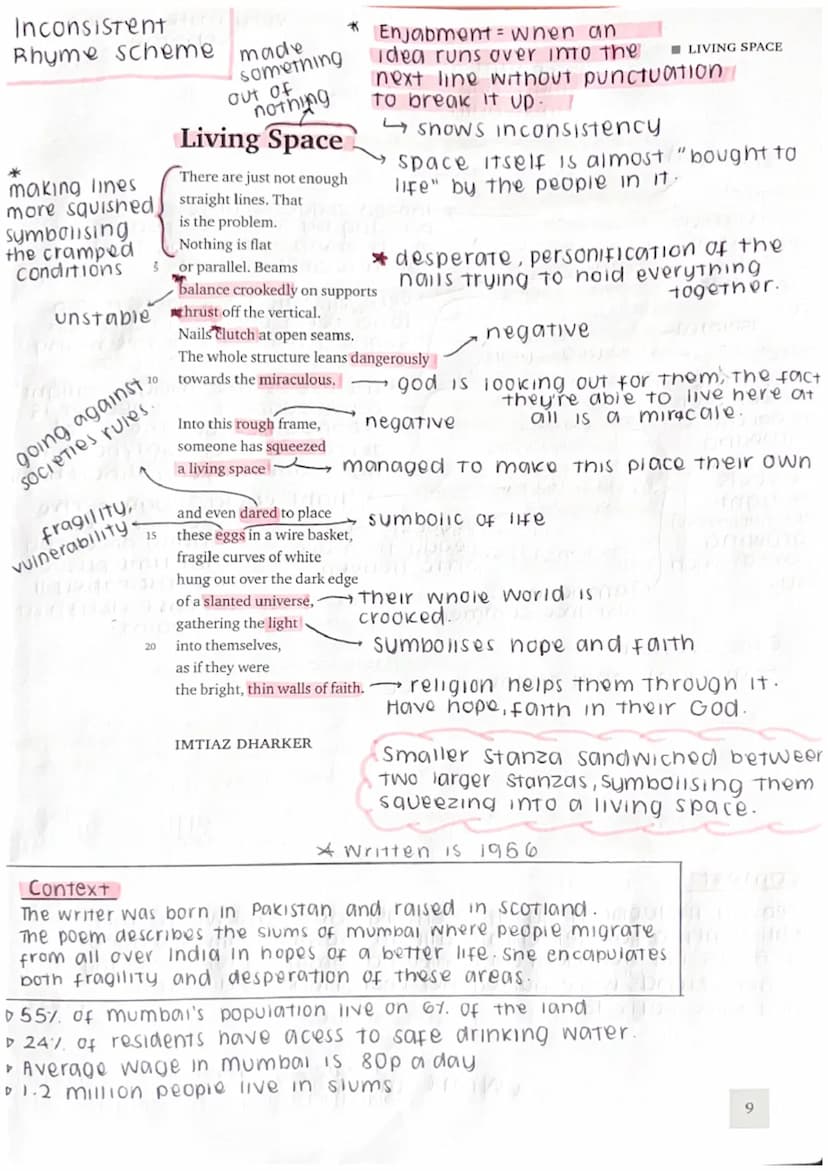 Inconsistent
Rhyme scheme
made
something
out of
nothing
* Enjabment = when an
idea runs over into the
next line without punctuation
to break it up.
↳ shows inconsistency
■ LIVING SPACE
Living Space
→ space itself is almost "bought to
life" by the people in it.
*
making lines
more squished
symbolising
the cramped
conditions
There are just not enough
straight lines. That
is the problem.
Nothing is flat
5 or parallel. Beams
balance crookedly on supports
thrust off the vertical.
Nails clutch at open seams.
The whole structure leans dangerously
10 towards the miraculous.
unstable
* desperate, personification of the
nails trying to hold everything
together.
negative
→ god is looking out for them, the fact
they're able to live here at
all is a miracale.
Into this rough frame,
someone has squeezed
a living space
negative
→ managed to make this place their own
going against
societies rules.
and even dared to place
15 these eggs in a wire basket,
fragile curves of white
hung out over the dark edge
of a slanted universe,
gathering the light
20 into themselves,
as if they were
the bright, thin walls of faith.
fragility,
vulnerability
sumbolic of life
→ their whole world is
crooked.
sumbolises hope and faith
→ religion helps them through it.
Have hope, faith in their God.
IMTIAZ DHARKER
Smaller stanza sandwiched between
two larger stanzas, symbolising them
squeezing into a living space.
* Written is 1956
Context
The writer was born in Pakistan and raised in Scotland.
The poem describes the slums of mumbai where people migrate
from all over India in hopes of a better life. She encapulates
both fragility and desperation of these areas.
▹ 55% of mumbai's population live on 6% of the land
▹ 24% of residents have acess to safe drinking water.
▹ Average wage in mumbai is 80p a day
▹ 1.2 million people live in slums
9